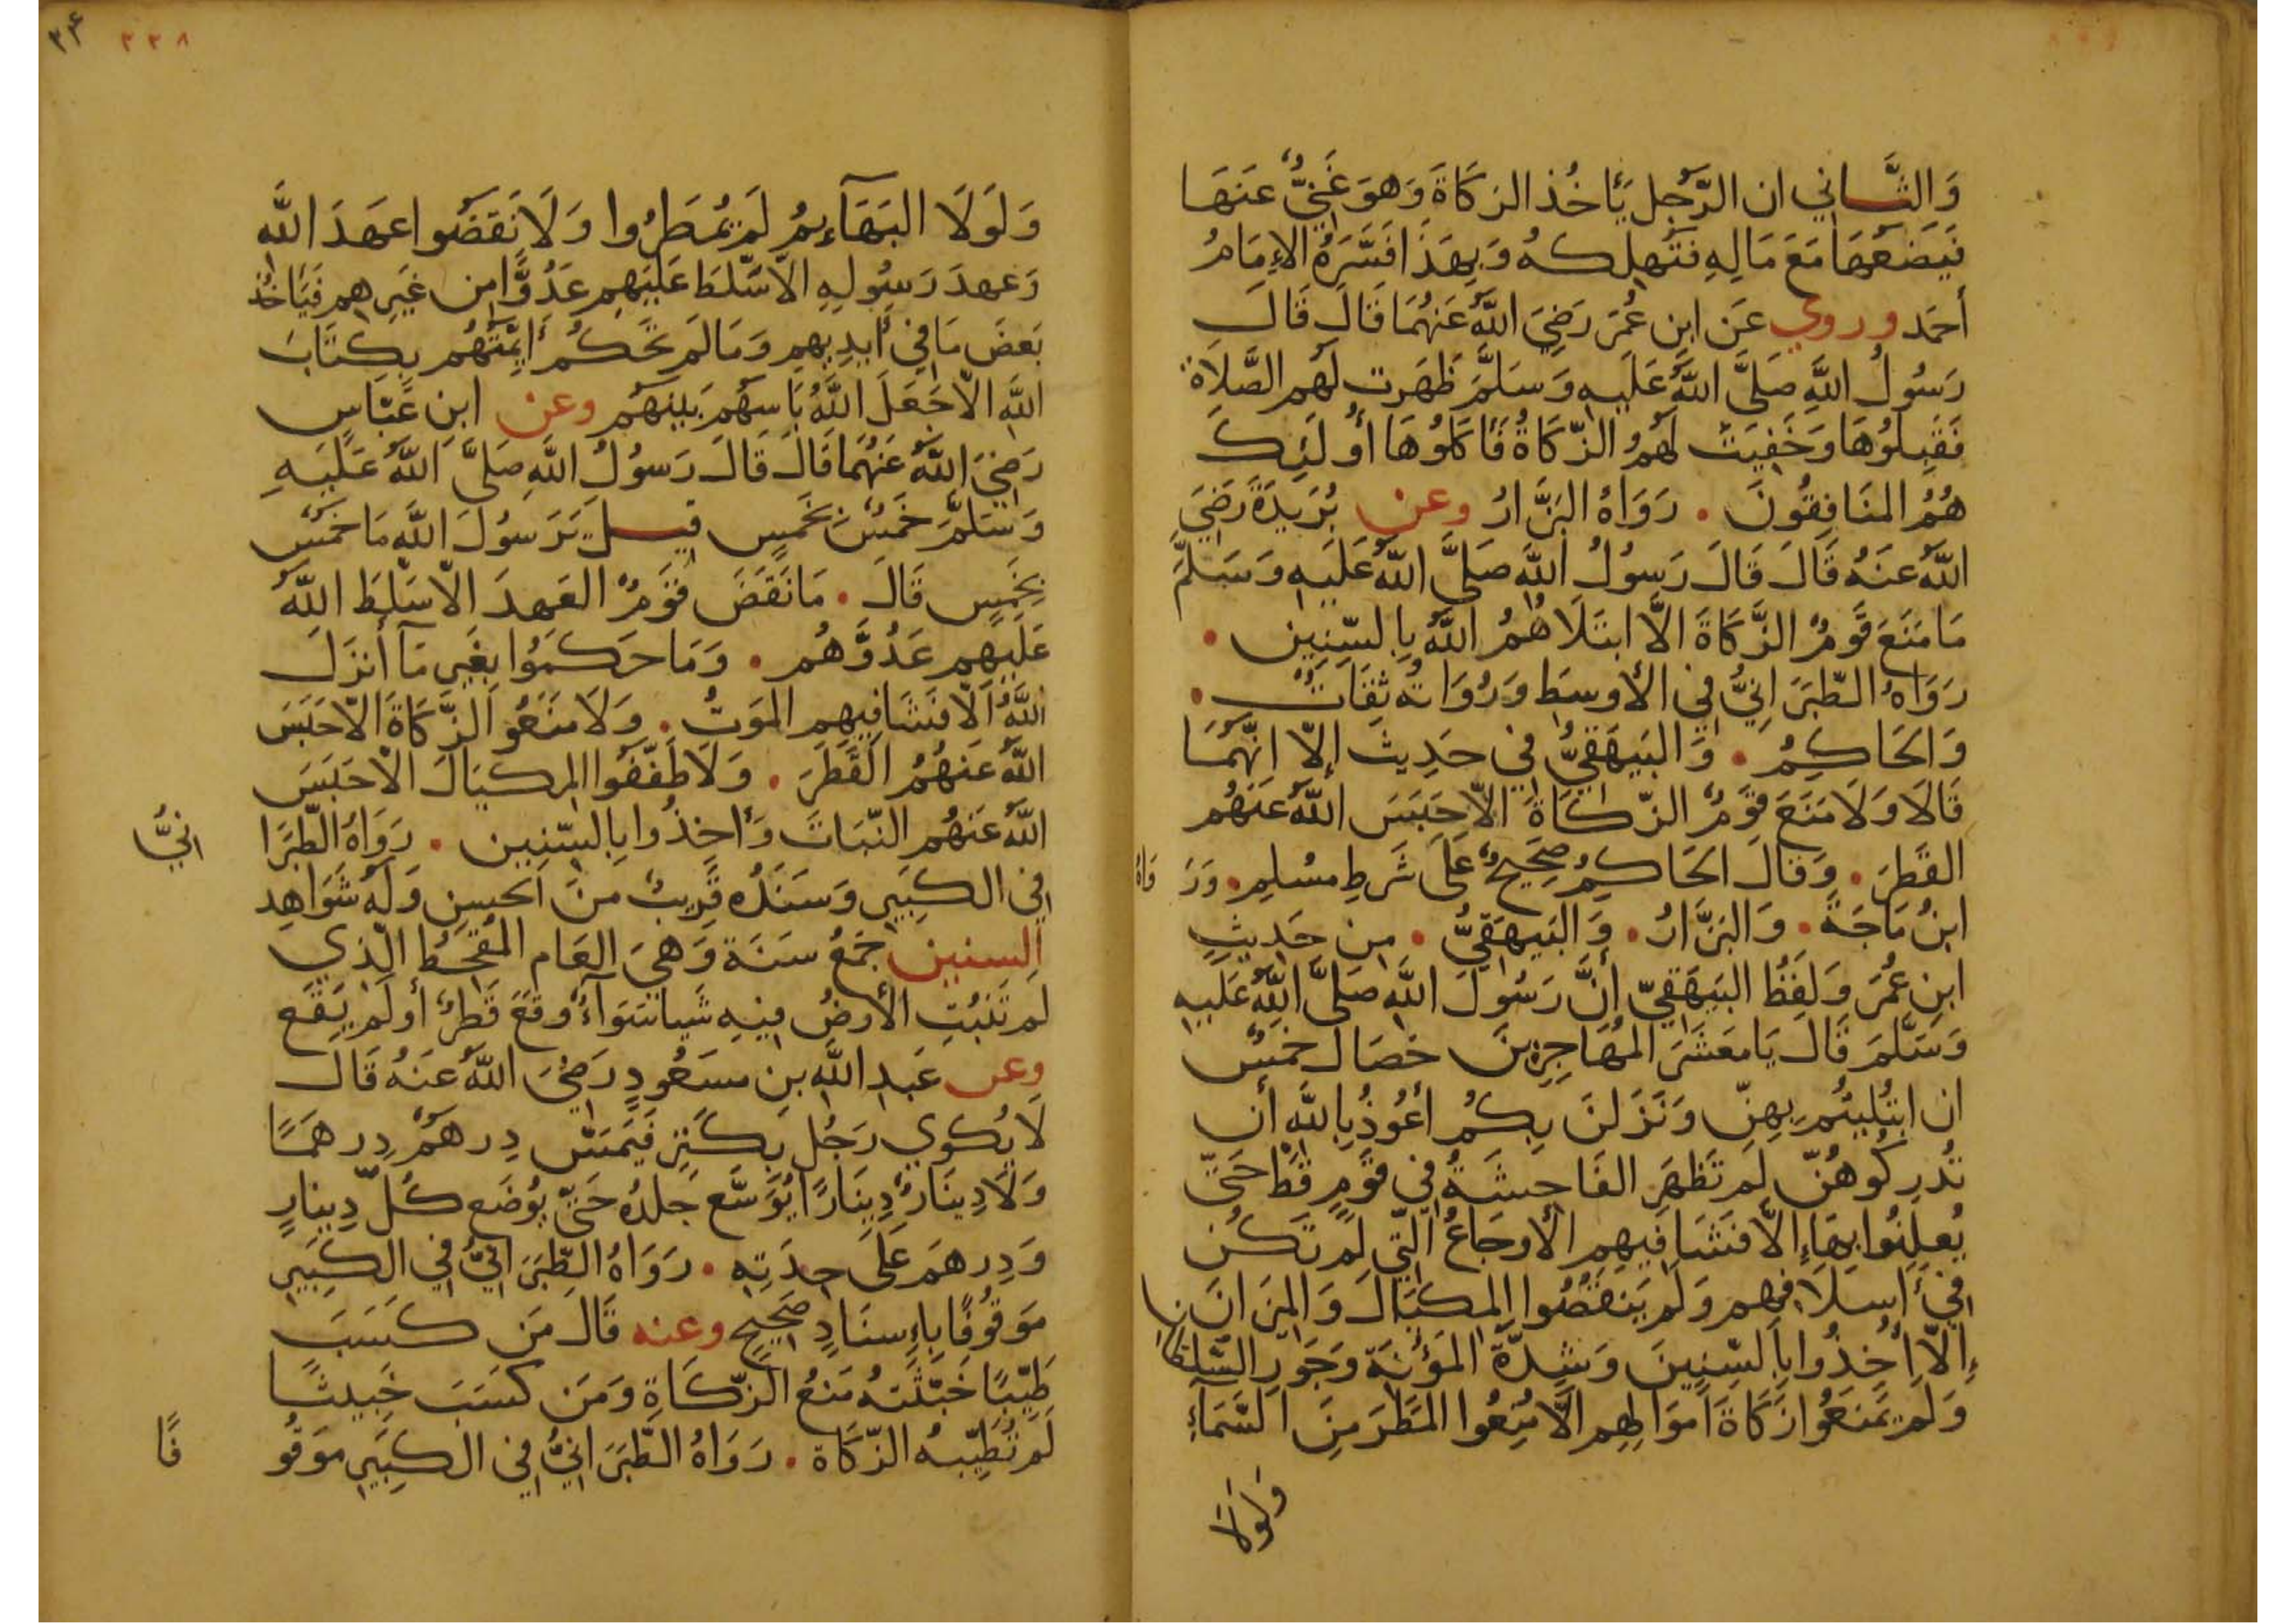 وَالثَّاني ان الرَّجُل يَأخُذ الزكَاةَ وَهوَ غَنِيٌّ عَنهَا
فَيَضَعُهَا مَعَ مَالِهِ فتُهلِكهُ وَبِهَذَا فَسَّرَهُ الإِمَامُ
أحمَد وروي عَن ابنِ عُمَرَ رَضِيَ اللَّهُ عَنهُمَا قَالَ قَالَ
رَسُولُ اللَّهِ صَلَّى اللَّهُ عَلَيهِ وَسَلَّمَ ظَهَرت لَهُم الصَّلَاةُ
فَقَبِلُوهَا وَخَفِيَت لَهُمُ الزّكَاةُ فَأَكَلُوهَا أُولَئِكَ
هُمُ المنَافِقُونَ . رَوَاهُ البَزَّارُ وعن بُرَيدَةَ رَضِيَ
اللَّهُ عَنهُ قَالَ قَالَ رَسُولُ اللَّهِ صَلَّى اللَّهُ عَلَيهِ وَسَلَّمَ
مَا مَنَعَ قَومٌ الزَّكَاةَ الَّا ابتَلَاهُمُ اللَّهُ بِالسِّنِين .
رَوَاهُ الطَّبَرَانِيُّ فِي الأَوسَطِ وَرُوَاتُه ثِقَاتٌ .
وَالحَاكِمُ . وَالبَيهَقِيُّ فِي حَدِيث إلَّا انَّهُمَا
قَالَا وَلَا مَنَعَ قَومٌ الزّكَاةَ الّا حَبَسَ اللَّهُ عَنهُم
القَطَرَ . وَقَالَ الحَاكِمُ صَحِيحٌ عَلَى شَرطِ مسُلِمِ . وَرَ وَاهُ
ابنُ مَاجَةَ . وَالبَزَّارُ . وَالبَيهَقِيُّ . مِن حَدِيثِ
ابنِ عُمَرَ وَلَفظُ البَيهَقِيّ أنَّ رَسُولَ اللَّهِ صَلَّى اللَّهُ عَلَيهِ
وَسَلَّمَ قَالَ يَا مَعشَرَ المُهَاجِرِينَ خصَال خَمسٌ
ان ابتُلِيتُم بِهِنَّ وَنَزَلنَ بِكُم أعُوذُ بِاللَّهِ أن
تُدرِكُوهُنّ لَم تَظهَرِ الفَاحِشَةُ فِي قَومٍ قَط حَتّى
يُعلِنُوا بِهَا إلَّا فَشَا فِيهِم الأَوجَاعُ الّتِي لَم تَكُن
فِي أَسلَافِهِم وَلَم يَنقُصُوا المِكيَالَ وَالمِيزَانَ
إلَّا أُخِذُوا بِالسِّنِينَ وَشِدَّة المَؤُنَة وَجَورِ السُّلطَانِ
وَلَم يَمنَعُوا زَكَاةَ أموَالِهِم الَّا مُنِعُوا المَطَرَ مِنَ السَّمَآءِ
وَلَولَا
٣٣٨
وَلَولَا البَهَآئِمُ لَم يُمطَرُوا وَلَا نَقَضُوا عَهَدَ اللَّهِ
وَعَهدَ رَسُولِهِ الّا سَلَّطَ عَلَيهِم عَدُوًّا من غَيرِهِم فَيَأخُذ
بَعضَ مَا فِي أَيدِيهِم وَمَا لَم تَحكُم أَئِمَّتُهُم بِكِتَابَ
اللَّهِ الّا جَعَلَ اللَّهُ بَاسَهُم بَينَهُم وعن ابنِ عَبَّاسٍ
رَضِيَ اللَّهُ عَنهُمَا قَالَ قَالَ رَسُولُ اللَّهِ صَلَّى اللَّهُ عَلَيهِ
وَسَلَّمَ خَمسٌ بِخَمسٍ قيلَ يَرَسُولَ اللَّهِ مَا خَمسٌ
بِخَمسٍ قَالَ . مَا نَقَضَ قَومٌ العَهدَ الّا سَلّطَ اللَّهُ
عَلَيهِم عَدُوَّهُم . وَمَا حَكَمُوا بِغَيرِ مَآ أَنزَلَ
اللَّهُ الَّا فَشَا فِيهِم المَوتُ . وَلَا مَنَعُو الزَّكَاةَ الّا حَبَسَ
اللَّهُ عَنهُمُ القَطَرَ . وَلَا طَفَّفُوا المِكيَالَ الّا حَبَسَ
اللَّهُ عَنهُم النّبَاتَ وَأخِذُوا بِالسّنِين . رَوَاهُ الطّبَرَا انيُّ
فِي الكَبِيرِ وَسَنَدُه قَرِيبٌ منَ الحسِنِ وَلَه شَوَاهِد
السنين جَمعُ سَنَة وَهيَ العَام المُقحطُ الّذِي
لَم تَنبُتِ الأَرضُ فِيهِ شَيا سَوَآءٌ وقَعَ قَطرٌ أو لَم يَقَع
وعن عَبدِ اللَّهِ بنِ مسَعُودٍ رَضِيَ اللَّهُ عَنهُ قَالَ
لَا يُكوي رَجُل بِكَنزٍ فَيَمَسّ دِرهَمٌ دِرهَمًا
وَلَا دِينَارٌ دِينَارًا يُوَسَّع جِلدُه حَتَّى يُوضَع كُلّ دِينارٍ
وَدِرهَم عَلَى حِدَتِهِ . رَوَاهُ الطّبَرَانيُّ فِي الكَبِيرِ
مَوقُوفًا بِإِسنَادٍ صَحِيحٍ وعنه قَالَ مَن كَسَبَ
طَيّبًا خَبَّثَتهُ مَنعُ الزّكَاةِ وَمَن كَسَبَ خَبِيثًا
لَم تُطَيّبهُ الزّكَاة . رَوَاهُ الطَّبَرَانيُّ فِي الكَبِيرِ مَوقُو فًا